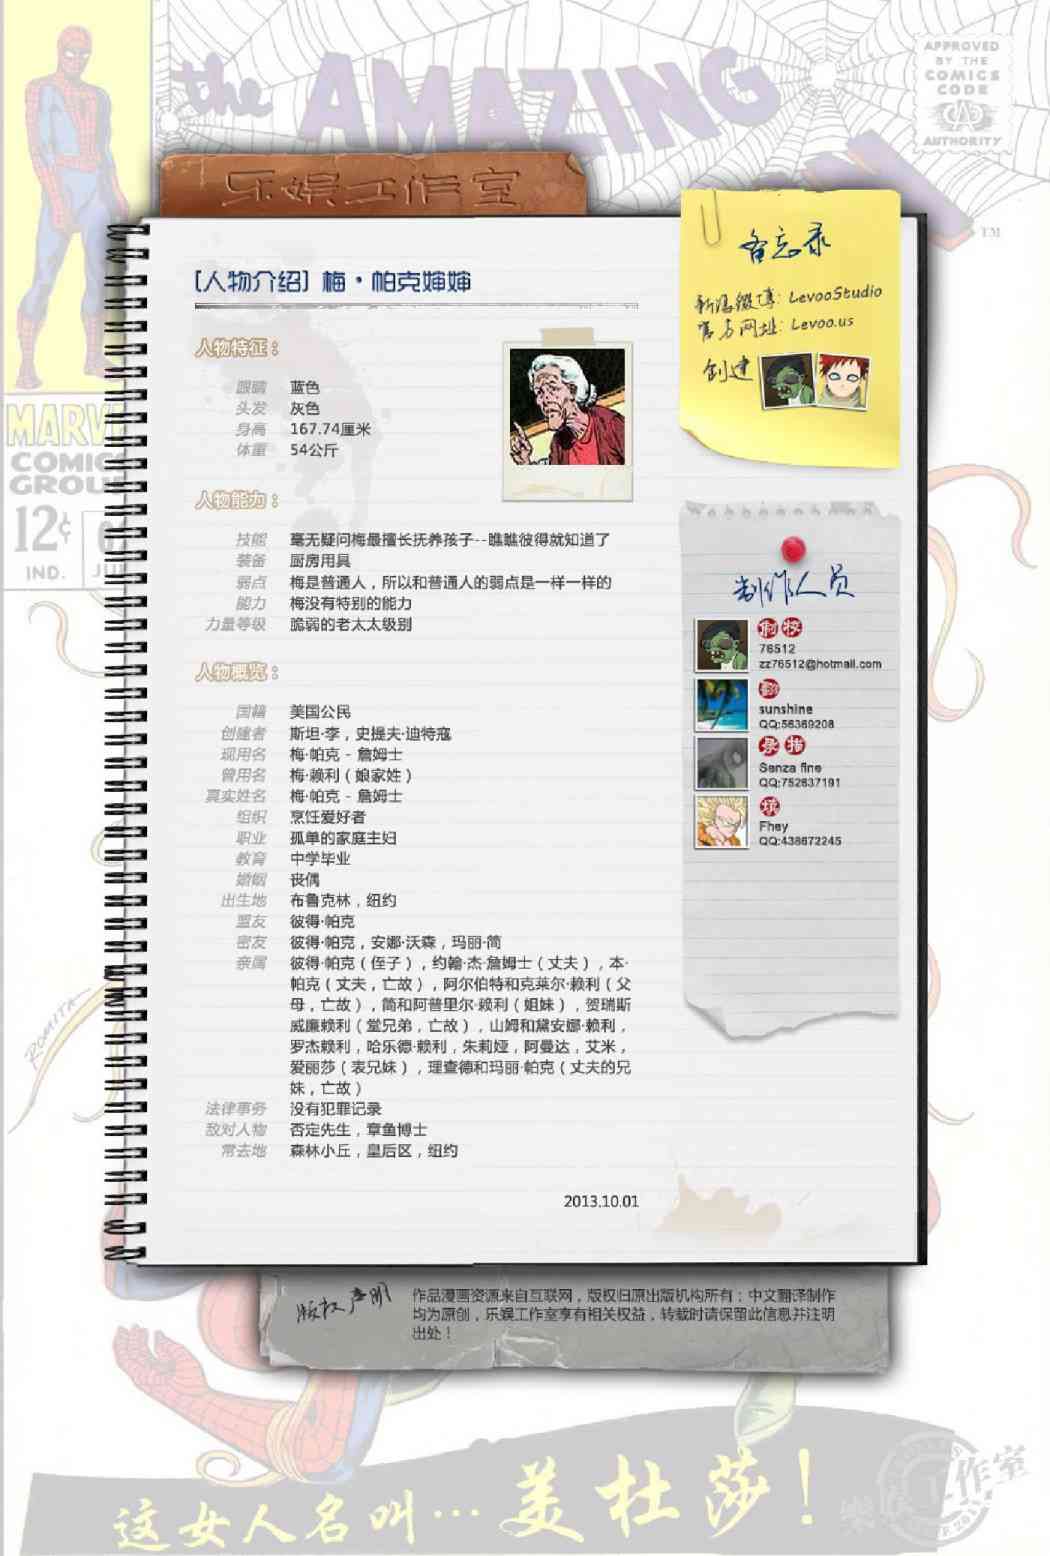 the AMAZING
APPROVED
BY THE
COMICS
CODE
AUTHORITY
TM
MARV
COMIC
GROU
12¢
IND.
乐娱工作室
[人物介绍] 梅·帕克婶婶
人物特征:
眼睛 蓝色
头发 灰色
身高 167.74厘米
体重 54公斤
人物能力:
技能 毫无疑问梅最擅长抚养孩子--瞧瞧彼得就知道了
装备 厨房用具
弱点 梅是普通人，所以和普通人的弱点是一样一样的
能力 梅没有特别的能力
力量等级 脆弱的老太太级别
人物概览:
国籍 美国公民
创建者 斯坦·李，史提夫·迪特寇
现用名 梅·帕克 - 詹姆士
曾用名 梅·赖利（娘家姓）
真实姓名 梅·帕克 - 詹姆士
组织 烹饪爱好者
职业 孤单的家庭主妇
教育 中学毕业
婚姻 丧偶
出生地 布鲁克林，纽约
盟友 彼得·帕克
密友 彼得·帕克，安娜·沃森，玛丽·简
亲属 彼得·帕克（侄子），约翰·杰·詹姆士（丈夫），本·
帕克（丈夫，亡故），阿尔伯特和克莱尔·赖利（父
母，亡故），简和阿普里尔·赖利（姐妹），贺瑞斯
威廉赖利（堂兄弟，亡故），山姆和黛安娜·赖利，
罗杰赖利，哈乐德·赖利，朱莉娅，阿曼达，艾米，
爱丽莎（表兄妹），理查德和玛丽·帕克（丈夫的兄
妹，亡故）
法律事务 没有犯罪记录
敌对人物 否定先生，章鱼博士
常去地 森林小丘，皇后区，纽约
2013.10.01
备忘录
新浪微博: LevooStudio
官方网址: Levoo.us
创建
制作人员
制 校
76512
zz76512@hotmail.com
翻
sunshine
QQ:56369208
录 描
Senza fine
QQ:752637191
填
Fhey
QQ:438672245
ROMITA
版权声明
作品漫画资源来自互联网，版权归原出版机构所有；中文翻译制作
均为原创，乐娱工作室享有相关权益，转载时请保留此信息并注明
出处！
这女人名叫…美杜莎！
樂娱工作室